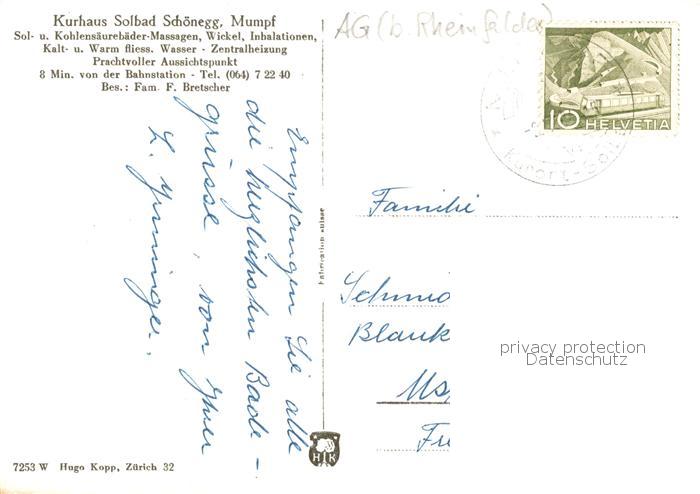 Kurhaus Solbad Schönegg, Mumpf
Sol- u. Kohlensäurebäder-Massagen, Wickel, Inhalationen,
Kalt- u. Warm fliess. Wasser - Zentralheizung
Prachtvoller Aussichtspunkt
8 Min. von der Bahnstation - Tel. (064) 7 22 40
Bes.: Fam. F. Bretscher
AG (b. Rheinfelden)
10 HELVETIA
Kurort-Sol
Empfangen Sie alle
die herzlichsten Bade-
grüsse, von Ihrer
Fabrication suisse
Familie
Schmid
Blauk
Us
Fr
privacy protection
Datenschutz
H K
7253 W Hugo Kopp, Zürich 32